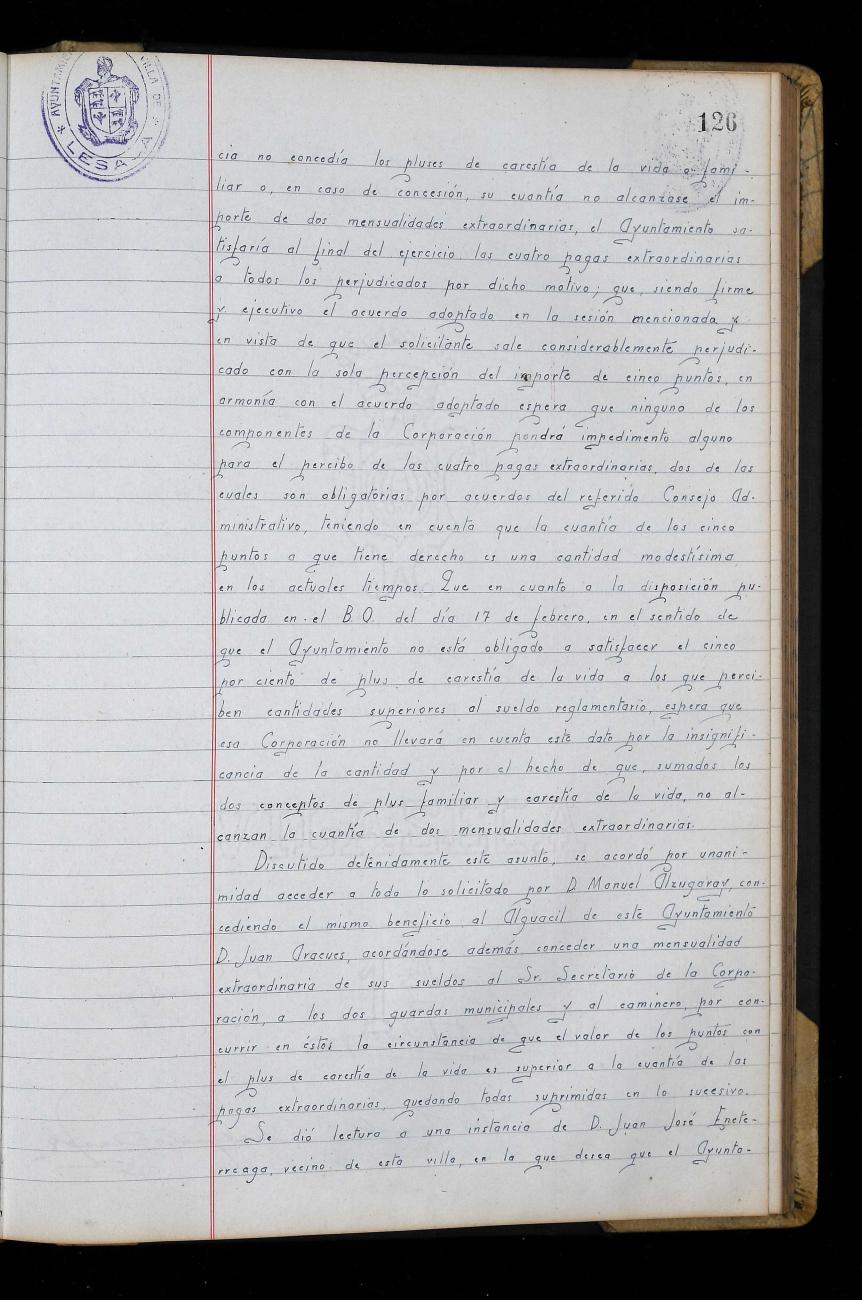 126
AYUNTAMIE VILLA DE
LESACA
cia no concedía los pluses de carestía de la vida o fami-
liar o, en caso de concesión, su cuantía no alcanzase el im-
porte de dos mensualidades extraordinarias, el Ayuntamiento sa-
tisfaría al final del ejercicio las cuatro pagas extraordinarias
a todos los perjudicados por dicho motivo; que, siendo firme
y ejecutivo el acuerdo adoptado en la sesión mencionada y
en vista de que el solicitante sale considerablemente perjudi-
cado con la sola percepción del importe de cinco puntos, en
armonía con el acuerdo adoptado espera que ninguno de los
componentes de la Corporación pondrá impedimento alguno
para el percibo de las cuatro pagas extraordinarias, dos de las
cuales son obligatorias por acuerdos del referido Consejo Ad-
ministrativo, teniendo en cuenta que la cuantía de los cinco
puntos a que tiene derecho es una cantidad modestísima
en los actuales tiempos. Que en cuanto a la disposición pu-
blicada en el B.O. del día 17 de febrero, en el sentido de
que el Ayuntamiento no está obligado a satisfacer el cinco
por ciento de plus de carestía de la vida a los que perci-
ben cantidades superiores al sueldo reglamentario, espera que
esa Corporación no llevará en cuenta este dato por la insignifi-
cancia de la cantidad y por el hecho de que, sumados los
dos conceptos de plus familiar y carestía de la vida, no al-
canzan la cuantía de dos mensualidades extraordinarias.
Discutido detenidamente este asunto, se acordó por unani-
midad acceder a todo lo solicitado por D. Manuel Alzugaray, con-
cediendo el mismo beneficio al Alguacil de este Ayuntamiento
D. Juan Aracues, acordándose además conceder una mensualidad
extraordinaria de sus sueldos al Sr. Secretario de la Corpo-
ración, a los dos guardas municipales y al caminero, por con-
currir en éstos la circunstancia de que el valor de los puntos con
el plus de carestía de la vida es superior a la cuantía de las
pagas extraordinarias, quedando todas suprimidas en lo sucesivo.
Se dió lectura a una instancia de D. Juan José Enete-
rreaga, vecino de esta villa, en la que desea que el Ayunta-